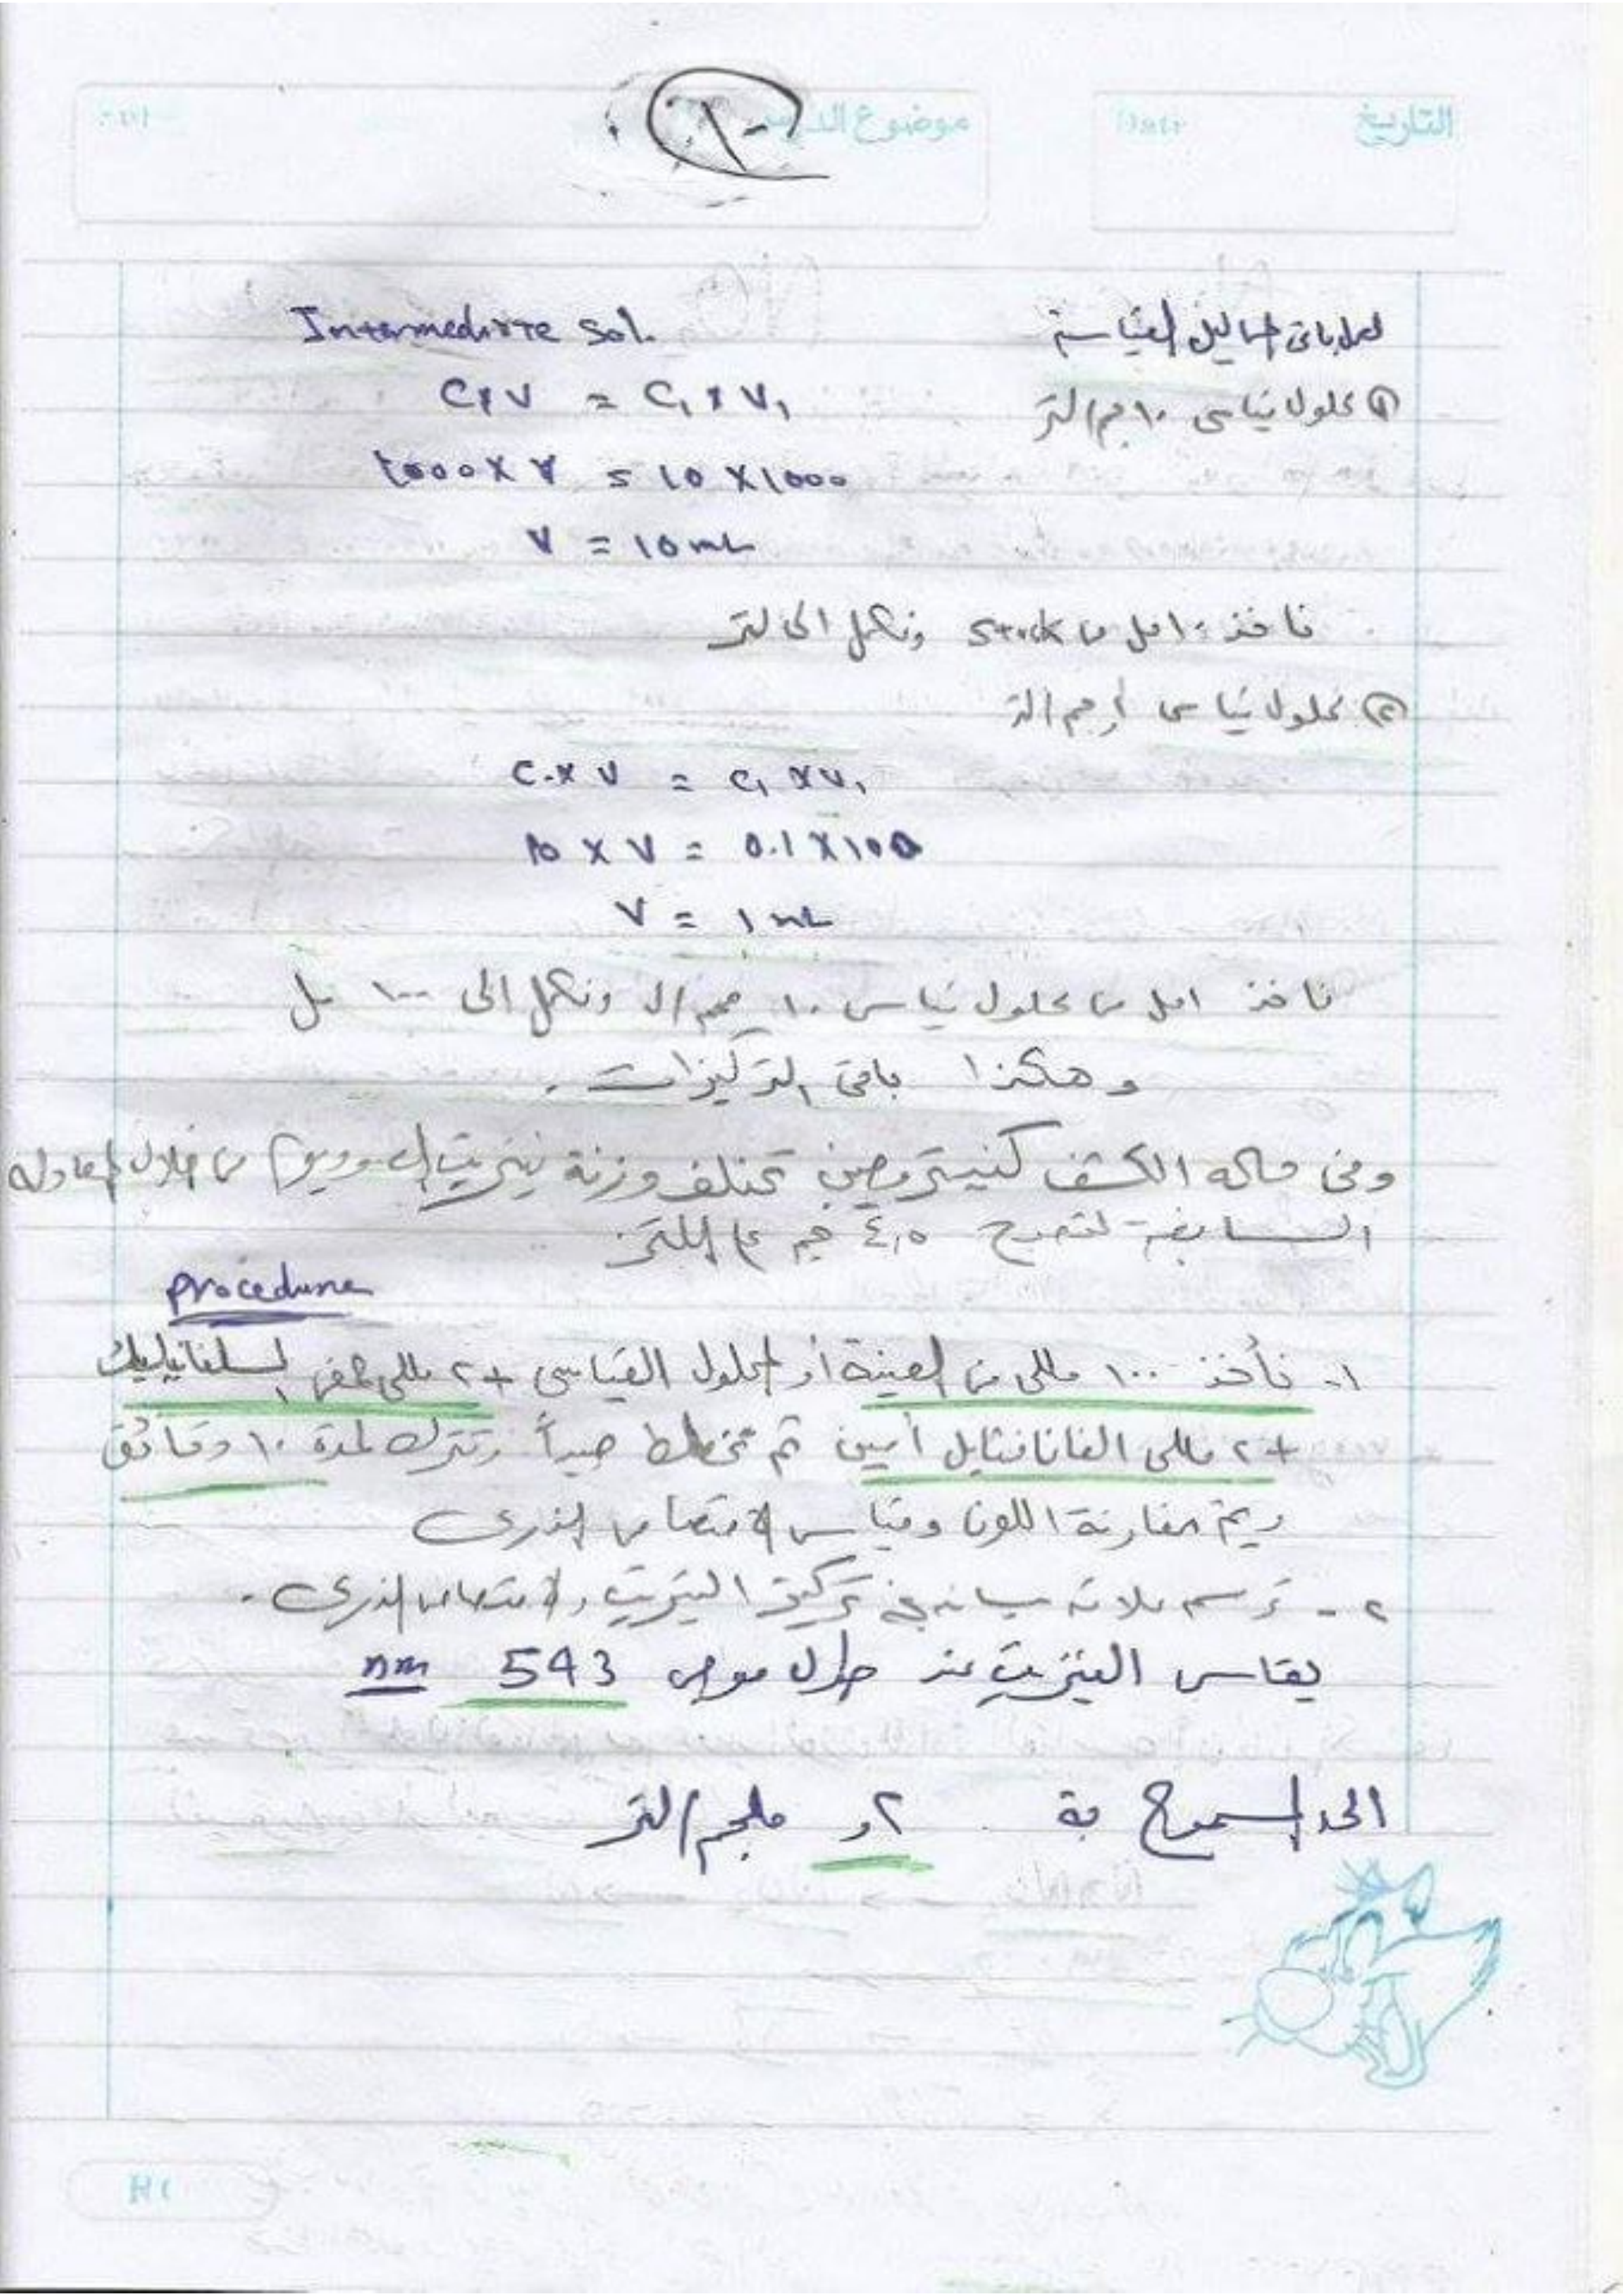 التاريخ Date
موضوع الدرس
لعمل باقى المحاليل القياسية Intermediate Sol.
① محلول قياسى ١٠ مجم/لتر
C × V = C₁ × V₁
1000 × V = 10 × 1000
V = 10 mL
ناخذ ١٠ مل من Stock ونكمل الى لتر
② محلول قياسى ,١ مجم/لتر
C × V = C₁ × V₁
10 × V = 0.1 × 100
V = 1 mL
ناخذ ١ مل من محلول قياسى ١٠ مجم/ل ونكمل الى ١٠٠ مل
وهكذا باقى التركيزات .
وفى حالة الكشف كنيتروجين تختلف وزنة نيتريت الصوديوم من خلال المعادلة
السابقة لتصبح ٤,٥ جم / اللتر
procedure
١- نأخذ ١٠٠ مللى من العينة أو المحلول القياسى + ٢ مللى حمض السلفانيليك
+ ٢ مللى الفانافثايل أمين ثم تخلط جيداً وتترك لمدة ١٠ دقائق
ويتم مقارنة اللون وقياس الامتصاص الذرى
٢- ترسم علاقة بيانية بين تركيز النيتريت والامتصاص الذرى .
يقاس النيتريت عند طول موجى 543 nm
الحد المسموح بة ٢, ملجم/لتر